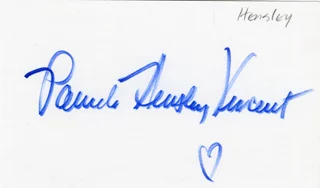 Hensley
Pamela Hensley Vincent